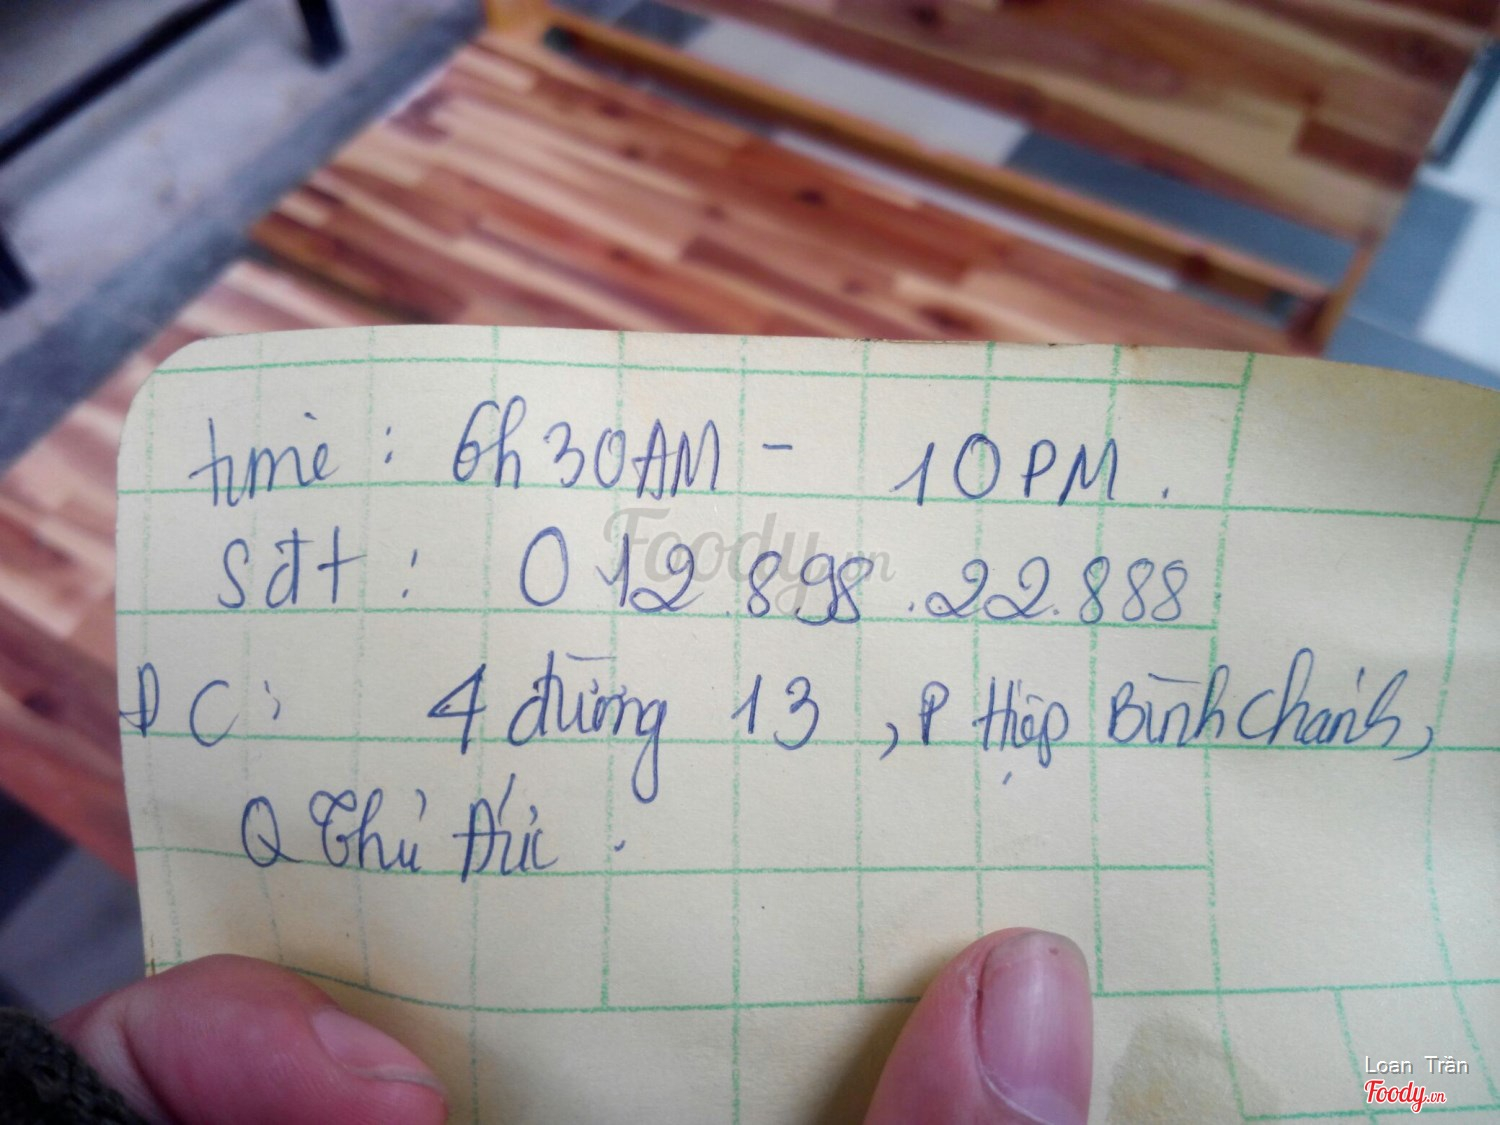 time : 6h30AM - 10PM.
sđt : 012.898.22.888
ĐC: 4 đường 13, P Hiệp Bình Chánh,
Q Thủ Đức.
Foody.vn
Loan Trần
Foody.vn